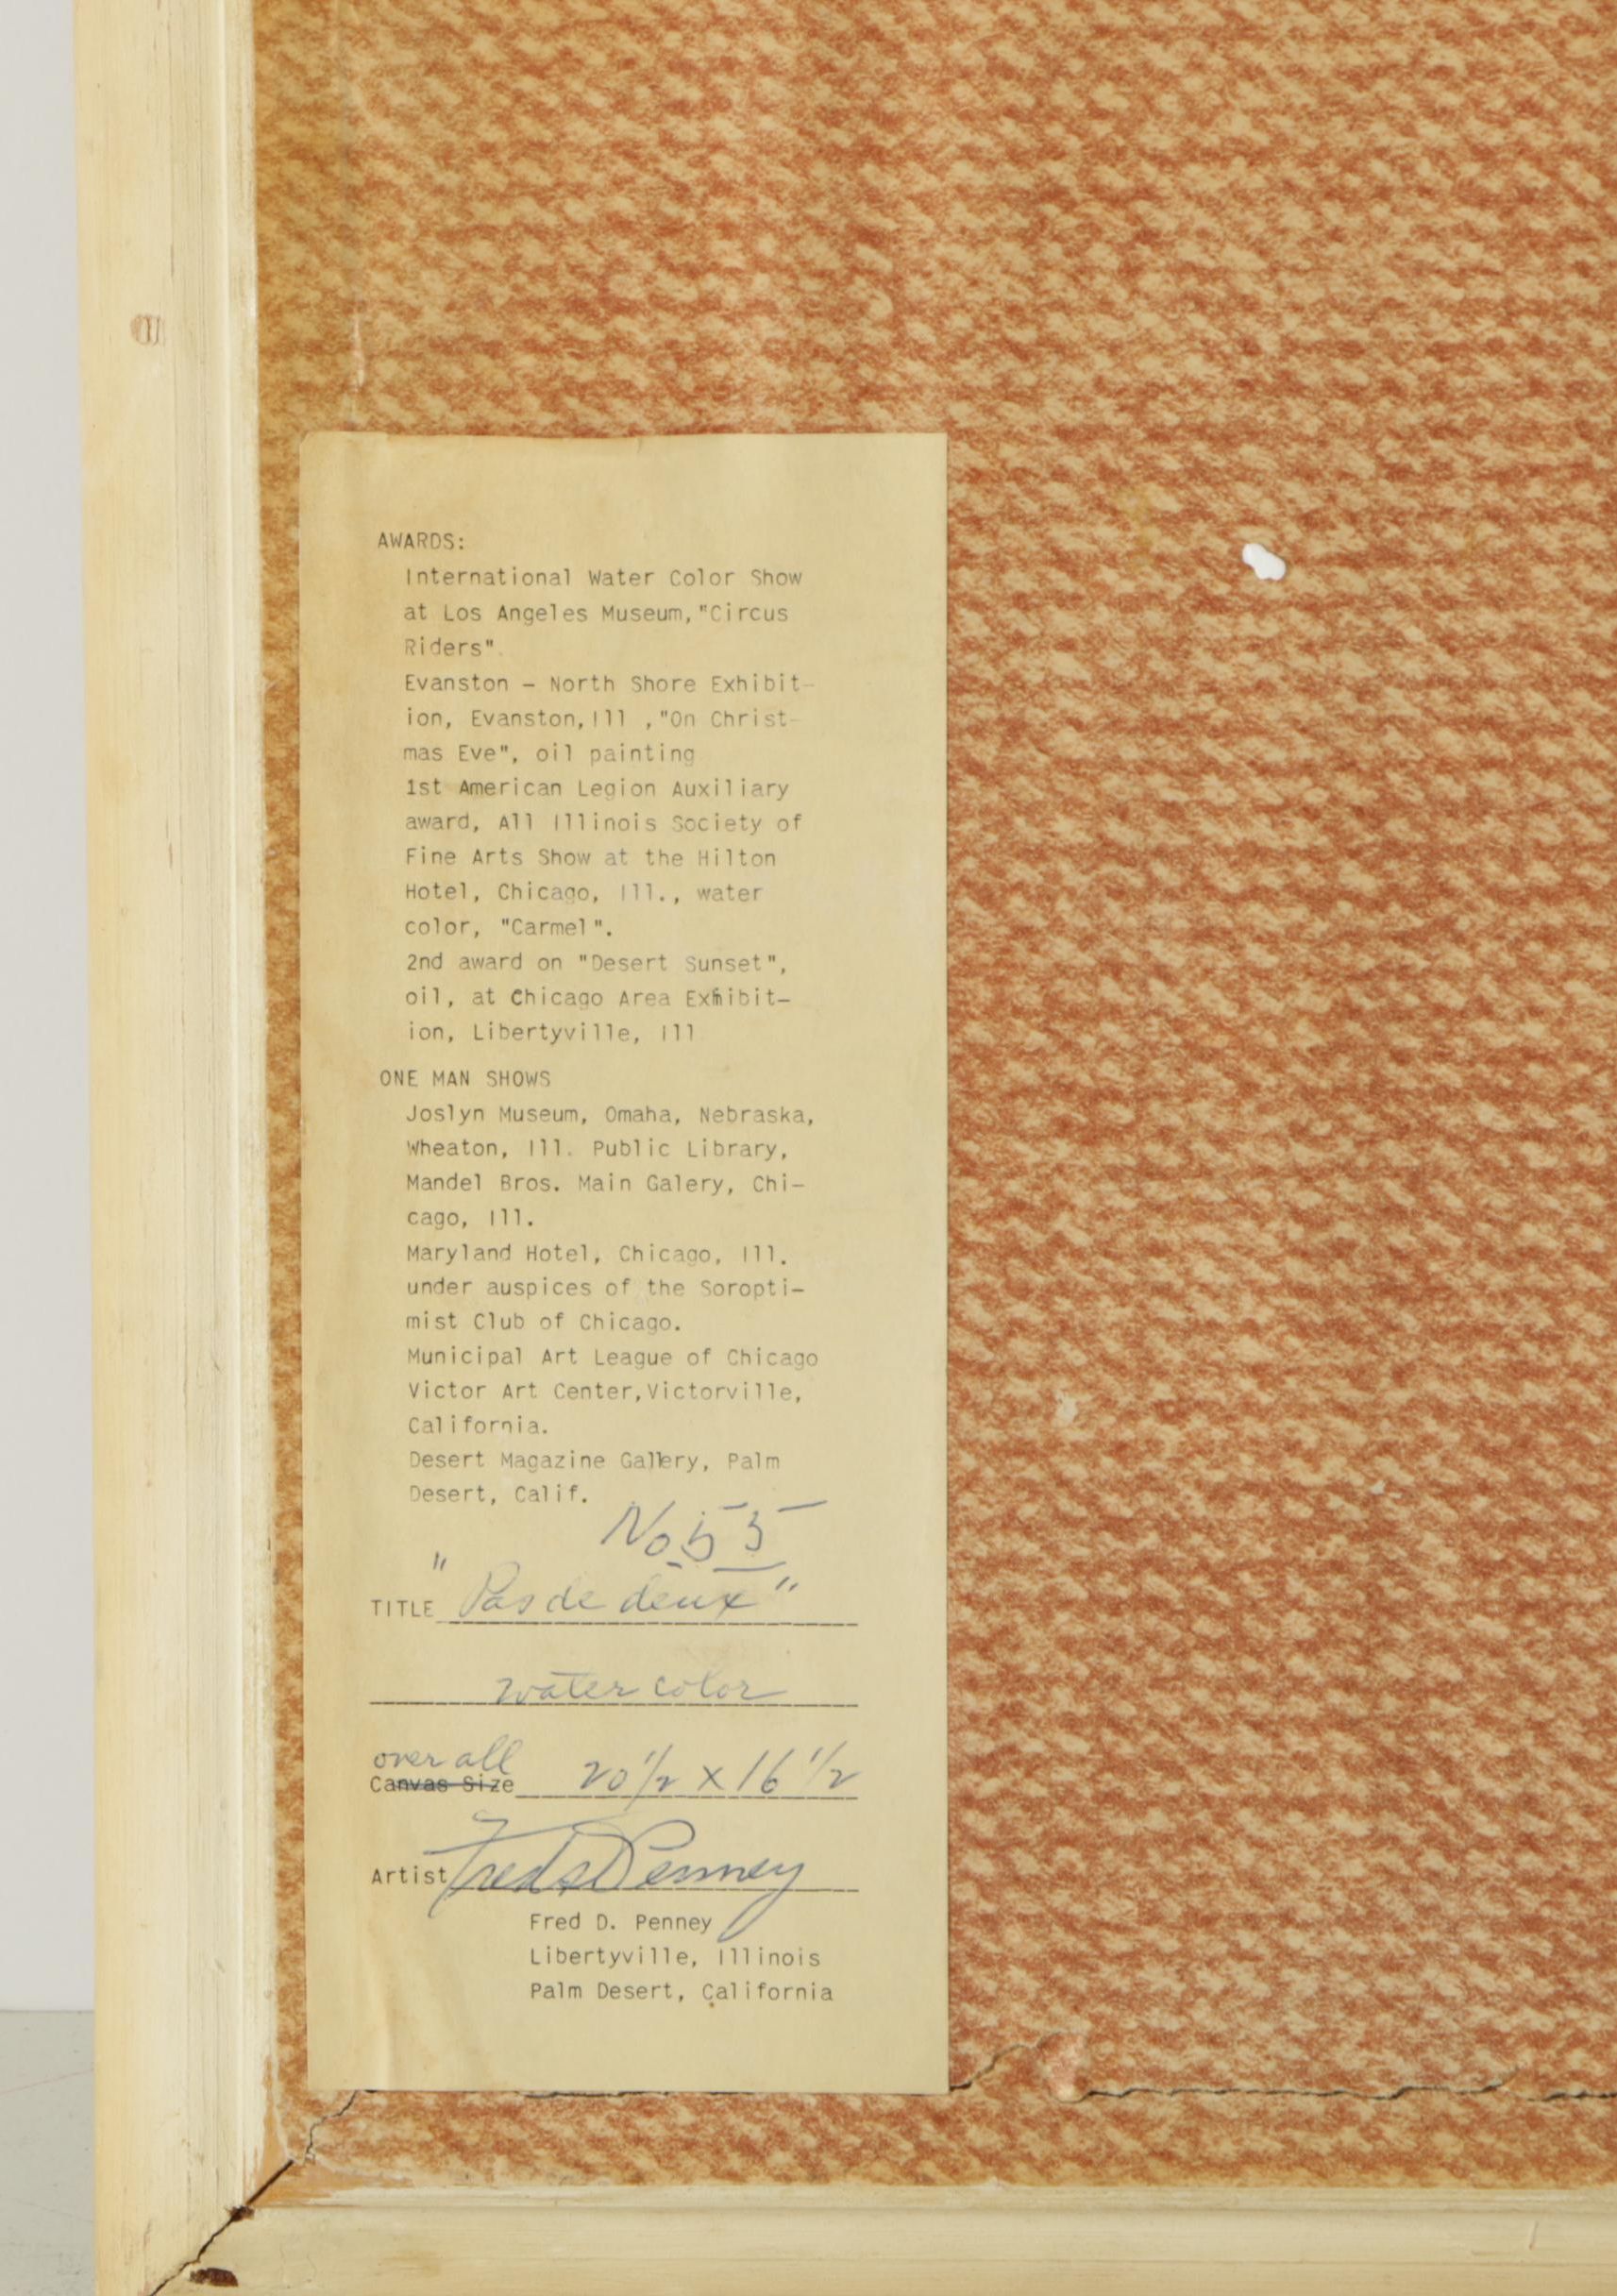 AWARDS:
International Water Color Show
at Los Angeles Museum,"Circus
Riders".
Evanston – North Shore Exhibit-
ion, Evanston,Ill ,"On Christ-
mas Eve", oil painting
1st American Legion Auxiliary
award, All Illinois Society of
Fine Arts Show at the Hilton
Hotel, Chicago, Ill., water
color, "Carmel".
2nd award on "Desert Sunset",
oil, at Chicago Area Exhibit-
ion, Libertyville, Ill
ONE MAN SHOWS
Joslyn Museum, Omaha, Nebraska,
Wheaton, Ill. Public Library,
Mandel Bros. Main Galery, Chi-
cago, Ill.
Maryland Hotel, Chicago, Ill.
under auspices of the Soropti-
mist Club of Chicago.
Municipal Art League of Chicago
Victor Art Center,Victorville,
California.
Desert Magazine Gallery, Palm
Desert, Calif.
No 55
TITLE "Pas de deux"
water color
over all
Canvas Size 20 1/2 x 16 1/2
Artist Fred D Penney
Fred D. Penney
Libertyville, Illinois
Palm Desert, California